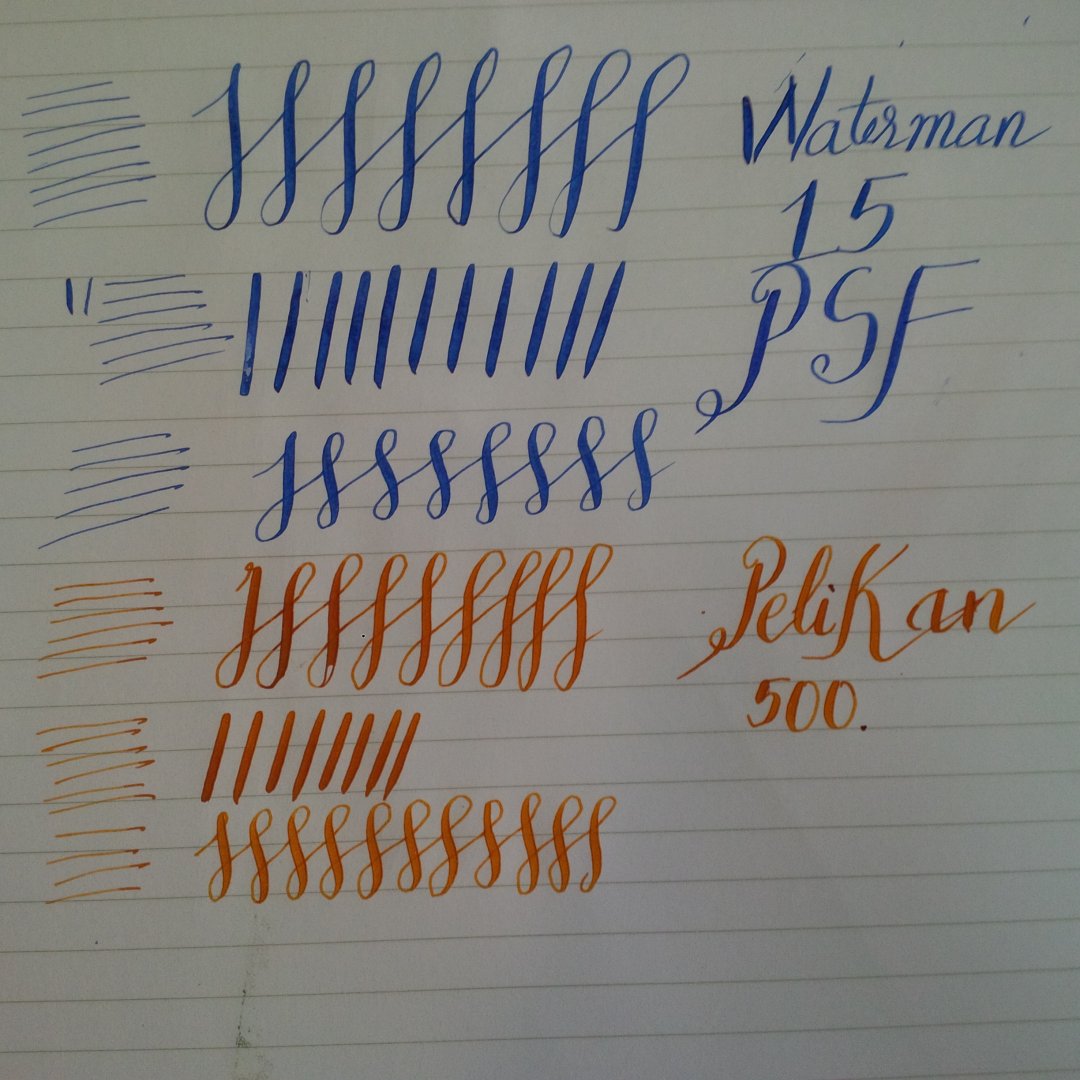 Waterman
15
PSF
Pelikan
500.